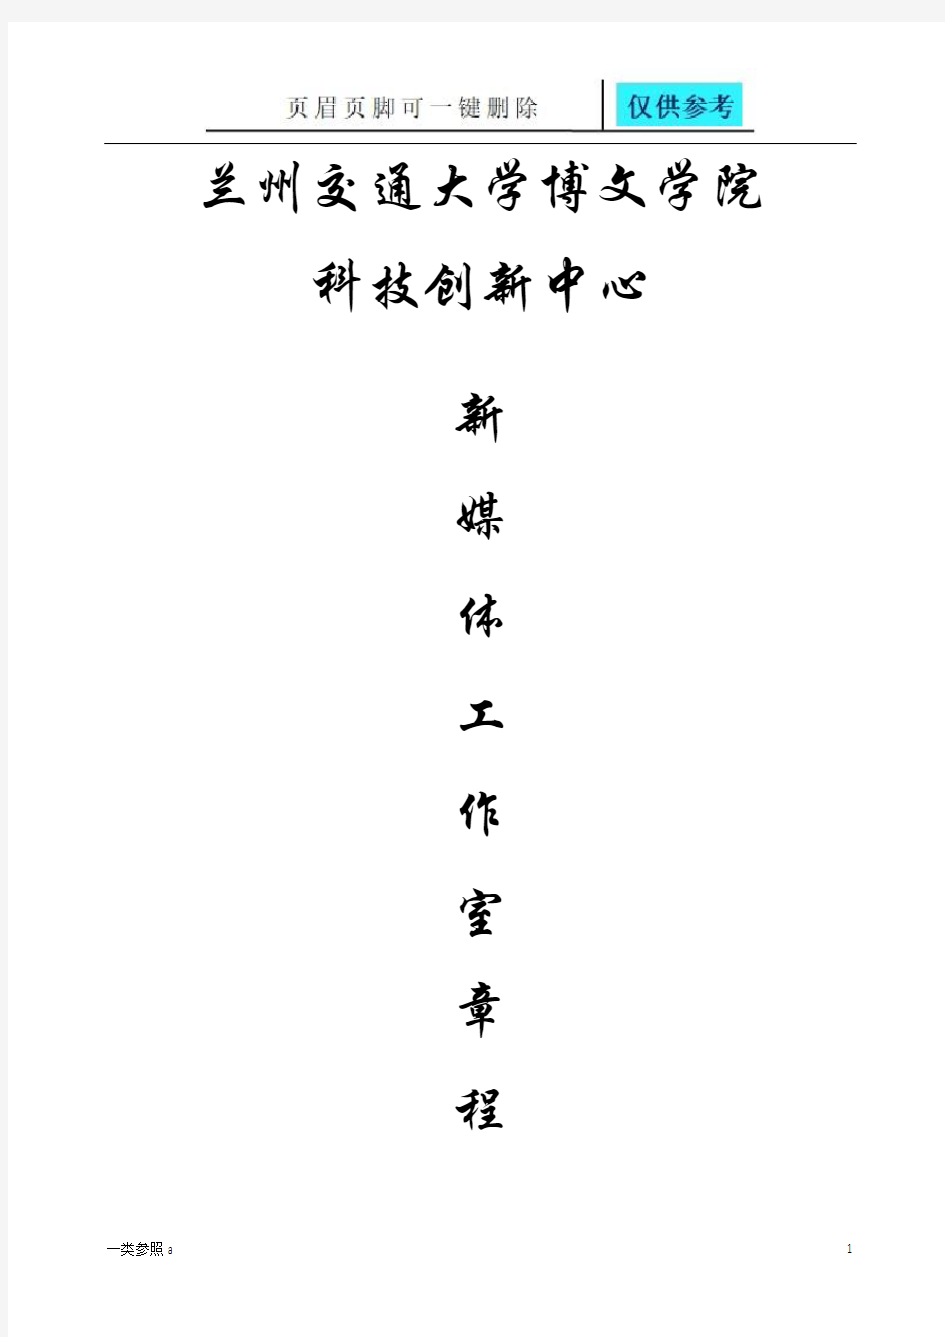 页眉页脚可一键删除 仅供参考
兰州交通大学博文学院
科技创新中心
新
媒
体
工
作
室
章
程
一类参照 a 1